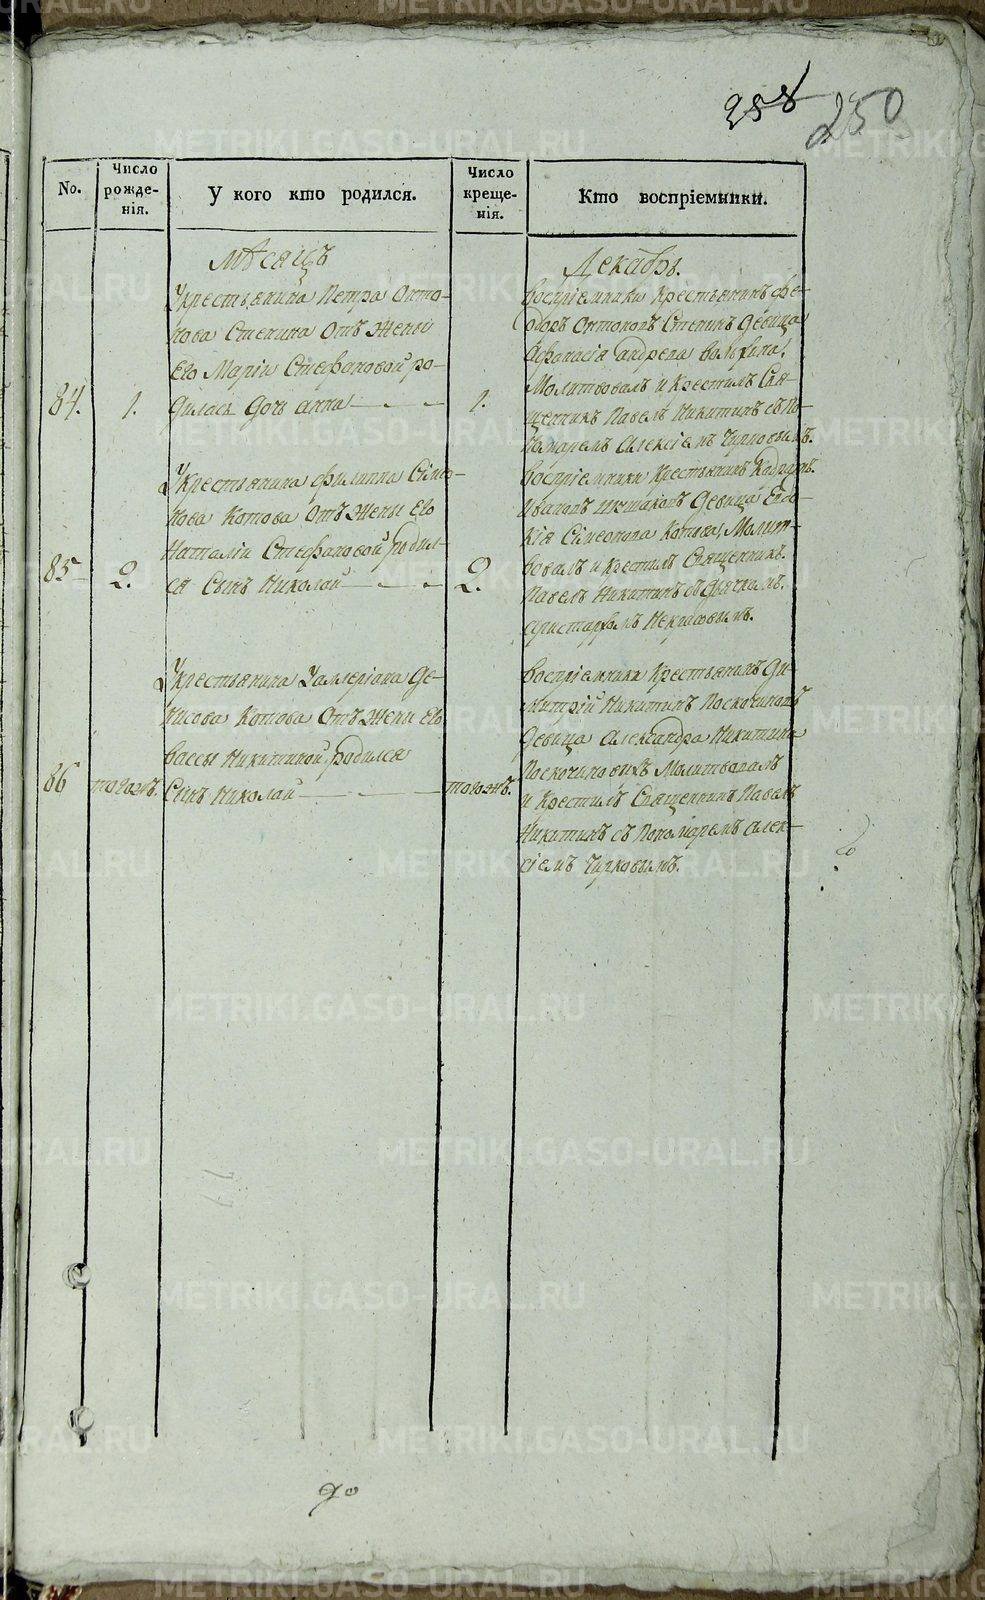 258
250
No.
Число рожде- нія.
У кого кто родился.
Число креще- нія.
Кто воспріемники.
Мѣсяцъ
Декабрь.
84.
1.
Укрестьянина Петра Анто-
нова Степина Отъ Жены
Его Маріи Стефановой ро-
дилась Дочь Анна
1.
Воспріемники Крестьянинъ Фе-
доръ Степинъ Девица
Афанасія
Молитвовалъ и Крестилъ Свя-
щенникъ Павелъ Никитинъ съ По-
номаремъ Алексіемъ Чирковымъ.
85
2.
Укрестьянина Филиппа Симо-
нова Котова Отъ Жены Его
Наталіи Стефановой родил-
ся Сынъ Николай
2.
Воспріемники Крестьянинъ
Ивановъ Девица Евдо-
кія Симеонова Котова, Молит-
вовалъ и Крестилъ Священникъ
Павелъ Никитинъ съ Дьячкомъ
Аристархомъ Некрасовымъ.
86
тогожъ.
Укрестьянина Уаллеріана Де-
нисова Котова Отъ Жены Его
Вассы Никитиной родился
Сынъ Николай
тогожъ.
Воспріемники Крестьянинъ Ди-
митрій Никитинъ Поскочиновъ
Девица Александра Никитина
Поскочиновыхъ Молитвовалъ
и Крестилъ Священникъ Павелъ
Никитинъ съ Пономаремъ Алек-
сіемъ Чирковымъ.
METRIKI.GASO-URAL.RU